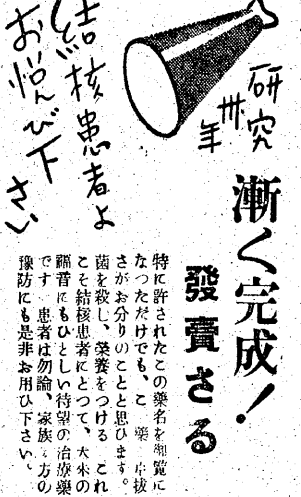 研究
卅年
結核患者よ
お悦び下さい
漸く完成!
發賣さる
特に許されたこの藥名を御覧に
なつただけでも、こ 藥 卓拔
さがお分りのことと思ひます。
菌を殺し、榮養をつける これ
こそ結核患者にとつて、 來の
福音にもひとしい待望の治療藥
です 患者は勿論、家族 方の
豫防にも是非お用ひ下さい。